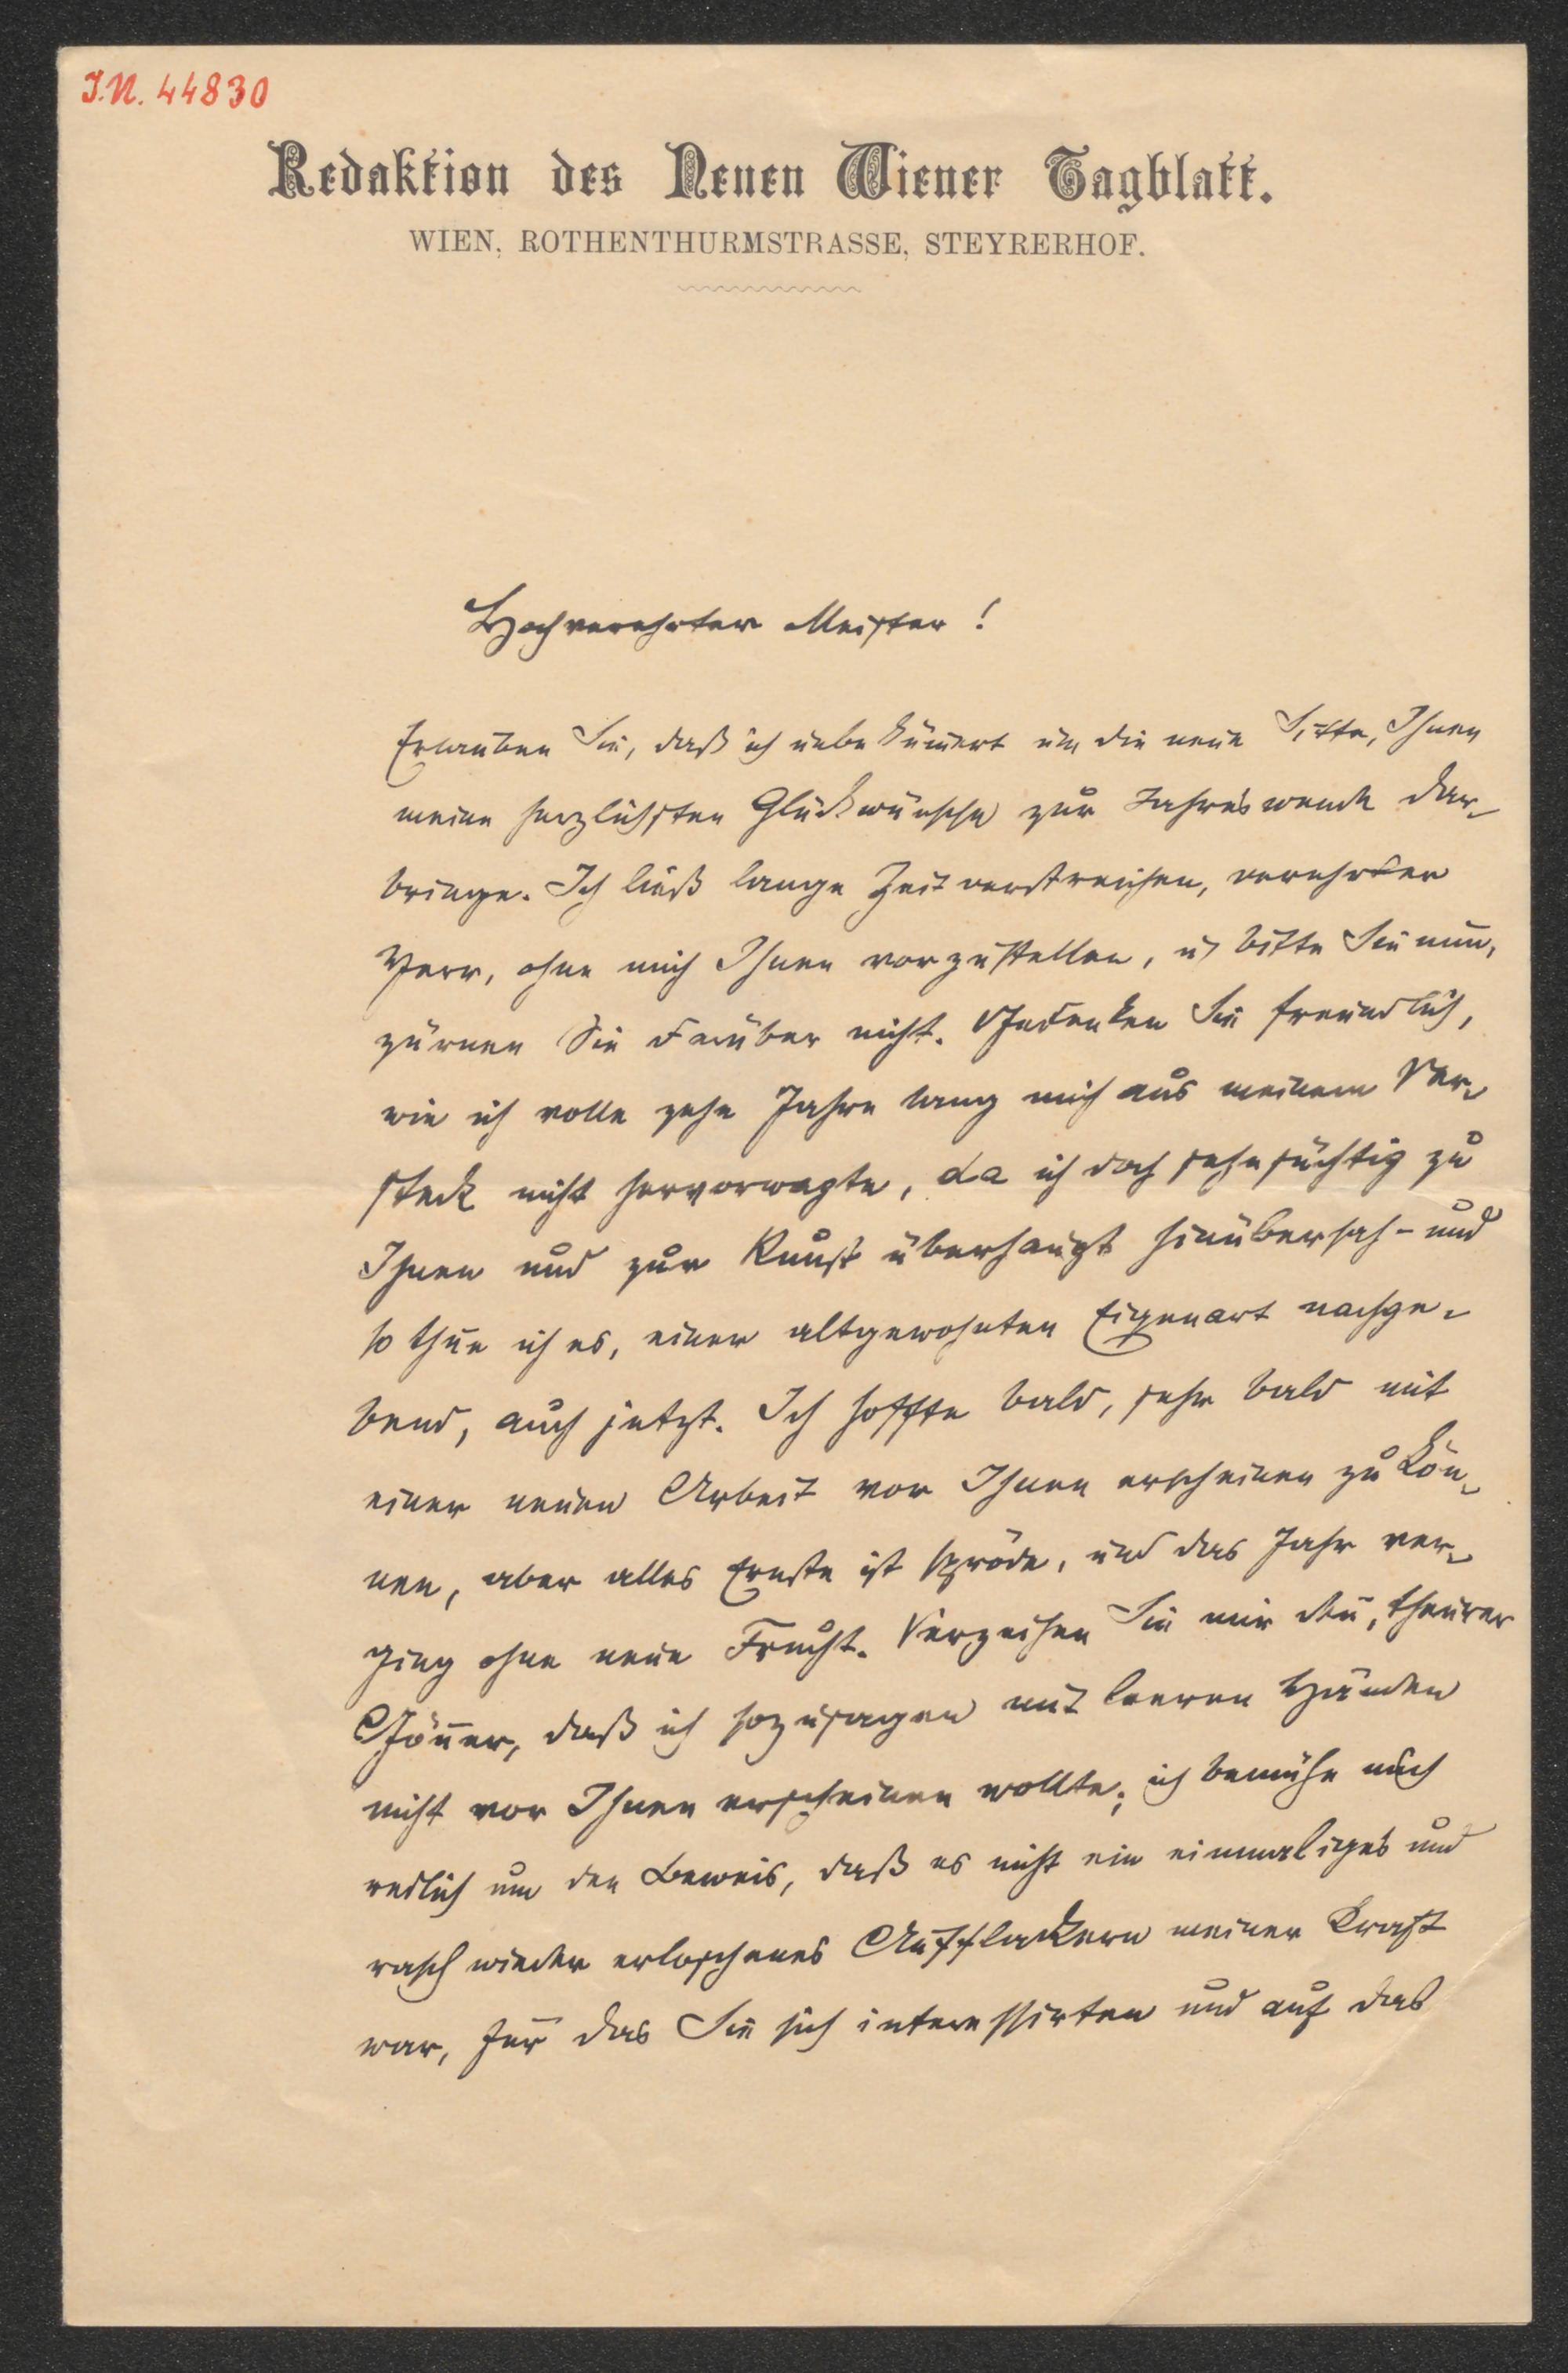 I.N. 44830
Redaktion des Neuen Wiener Tagblatt.
WIEN, ROTHENTHURMSTRASSE, STEYRERHOF.
Hochverehrter Meister!
Erlauben Sie, daß ich unbekümert um die neue Sitte, Ihnen
meine herzlichsten Glückwünsche zur Jahreswende dar-
bringe. Ich ließ lange Zeit verstreichen, verehrter
Herr, ohne mich Ihnen vorzustellen, u bitte Sie nun,
zürnen Sie darüber nicht. Gedenken Sie freundlich,
wie ich volle zehn Jahre lang mich aus meinem Ver-
steck nicht hervorwagte, da ich doch sehnsüchtig zu
Ihnen und zur Kunst überhaupt hinübersah - und
so thue ich es, einer altgewohnten Eigenart nachge-
bend, auch jetzt. Ich hoffte bald, sehr bald mit
einer neuen Arbeit vor Ihnen erscheinen zu kön-
nen, aber alles Ernste ist spröde, und das Jahr ver-
ging ohne neue Frucht. Verzeihen Sie mir den, theurer
Göner, daß ich sozusagen mit leeren Händen
nicht vor Ihnen erscheinen wollte; ich bemühe mich
redlich um den Beweis, daß es nicht ein einmaliges und
rasch wieder erloschenes Aufflackern meiner Kraft
war, für das Sie sich interessirten und auf das